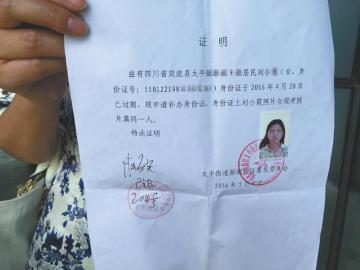 证 明
兹有四川省双流县太平 居民刘小 （女，身
份证号：510122198 ）身份证于 2016 年 4 月 20 日
已过期，现申请补办身份证，身份证上刘小霞照片与现有照
片属同一人。
特此证明
太平街道 居民委员会
2016 年 5 月